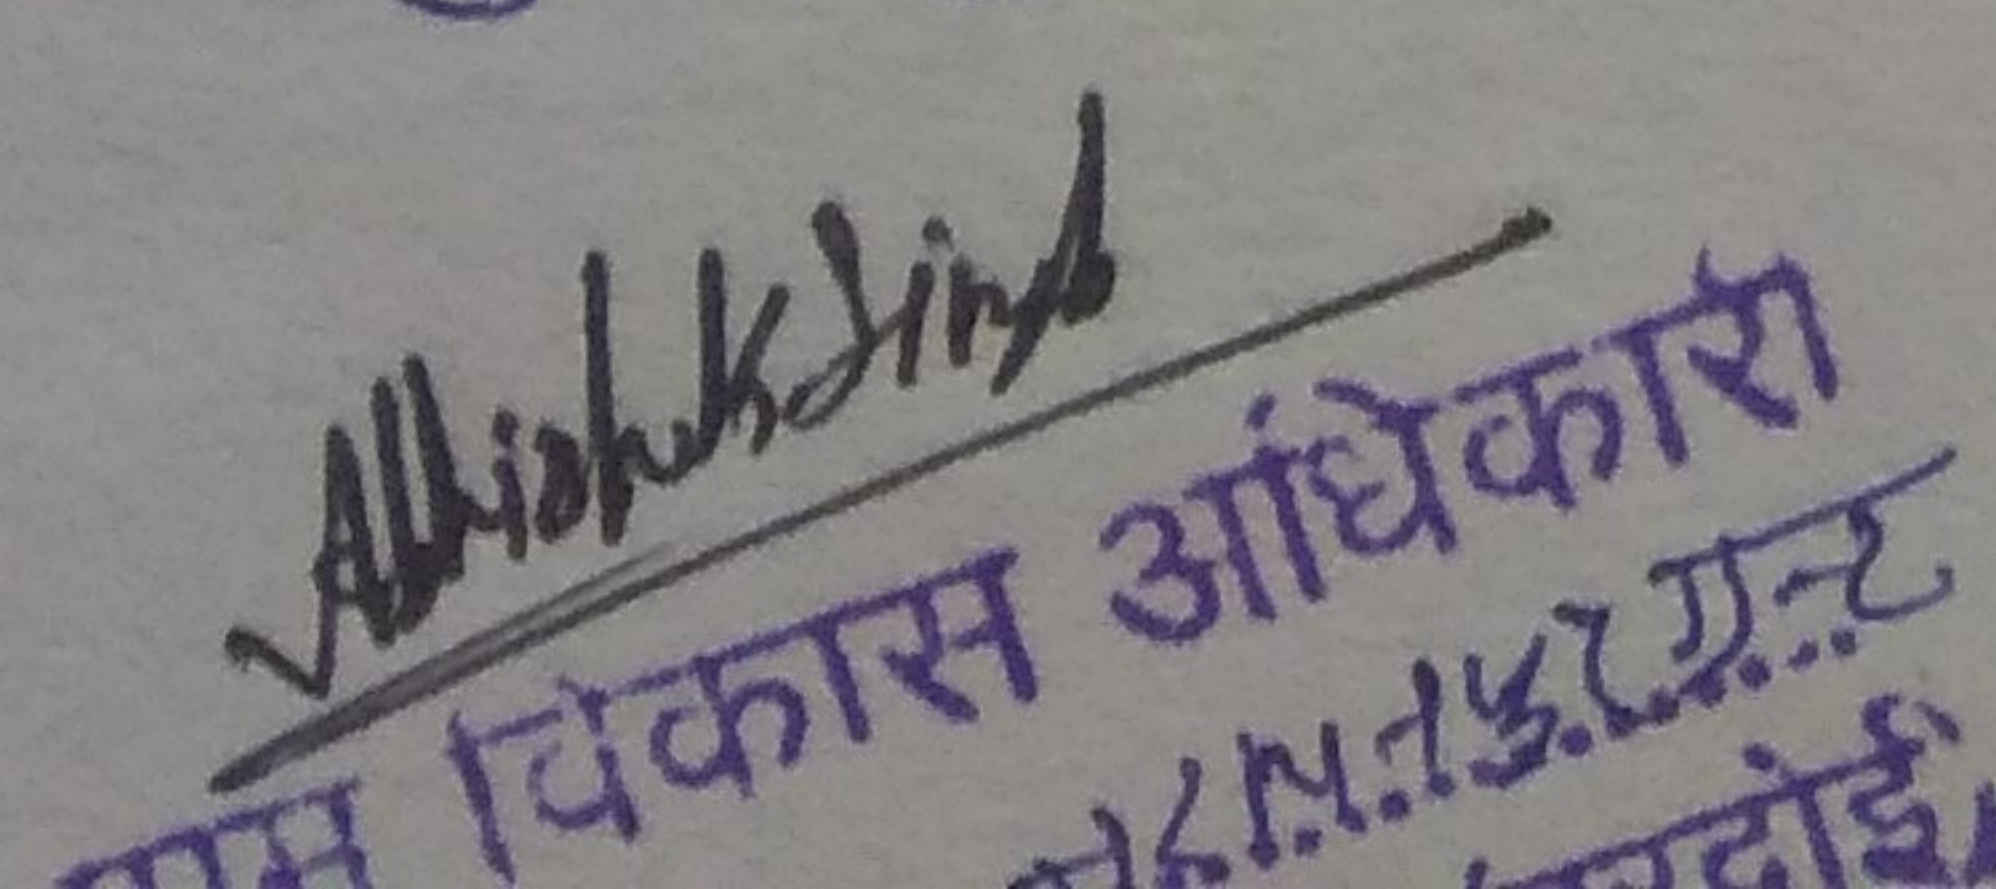 Abhishek Singh
ग्राम विकास अधिकारी
हरदोई